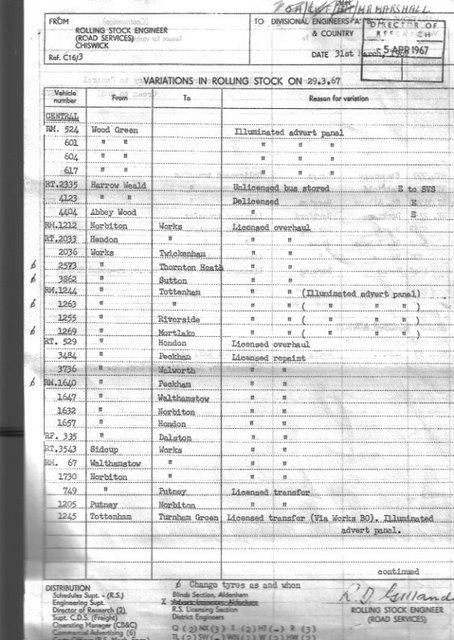 MR MARSHALL
FROM
ROLLING STOCK ENGINEER
(ROAD SERVICES)
CHISWICK
Ref. C16/3
TO DIVISIONAL ENGINEERS 'A'
& COUNTRY
DATE 31st March,
DIRECTOR OF
5 APR 1967
VARIATIONS IN ROLLING STOCK ON 29.3.67
Vehicle number From To Reason for variation
CENTRAL
RM. 524 Wood Green Illuminated advert panel
601 " " " " "
604 " " " " "
617 " " " " "
RT.2335 Harrow Weald Unlicensed bus stored E to SVS
4123 " " Delicensed E
4404 Abbey Wood " E
RM.1212 Norbiton Works Licensed overhaul
RT.2033 Hendon " " "
2036 Works Twickenham " "
6 2573 " Thornton Heath " "
6 3862 " Sutton " "
RM.1244 " Tottenham " " (Illuminated advert panel)
6 1263 " " " " ( " " " )
1255 " Riverside " " ( " " " )
6 1269 " Mortlake " " ( " " " )
RT. 529 " Hendon Licensed overhaul
3484 " Peckham Licensed repaint
3736 " Walworth " "
6 RM.1640 " Peckham " "
1647 " Walthamstow " "
1632 " Norbiton " "
1657 " Hendon " "
RF. 335 " Dalston " "
RT.3543 Sidcup Works " "
RM. 67 Walthamstow " " "
1730 Norbiton " " "
749 " Putney Licensed transfer
1205 Putney Norbiton " "
1245 Tottenham Turnham Green Licensed transfer (Via Works BO). Illuminated
advert panel.
continued
6 Change tyres as and when
DISTRIBUTION
Schedules Supt. - (R.S.)
Engineering Supt.
Director of Research (2)
Supt. C.D.S. (Freight)
Operating Manager (CB&C)
Commercial Advertising (6)
Blinds Section, Aldenham
R.S. Licensing Section
District Engineers
R D Gilland
ROLLING STOCK ENGINEER
(ROAD SERVICES)